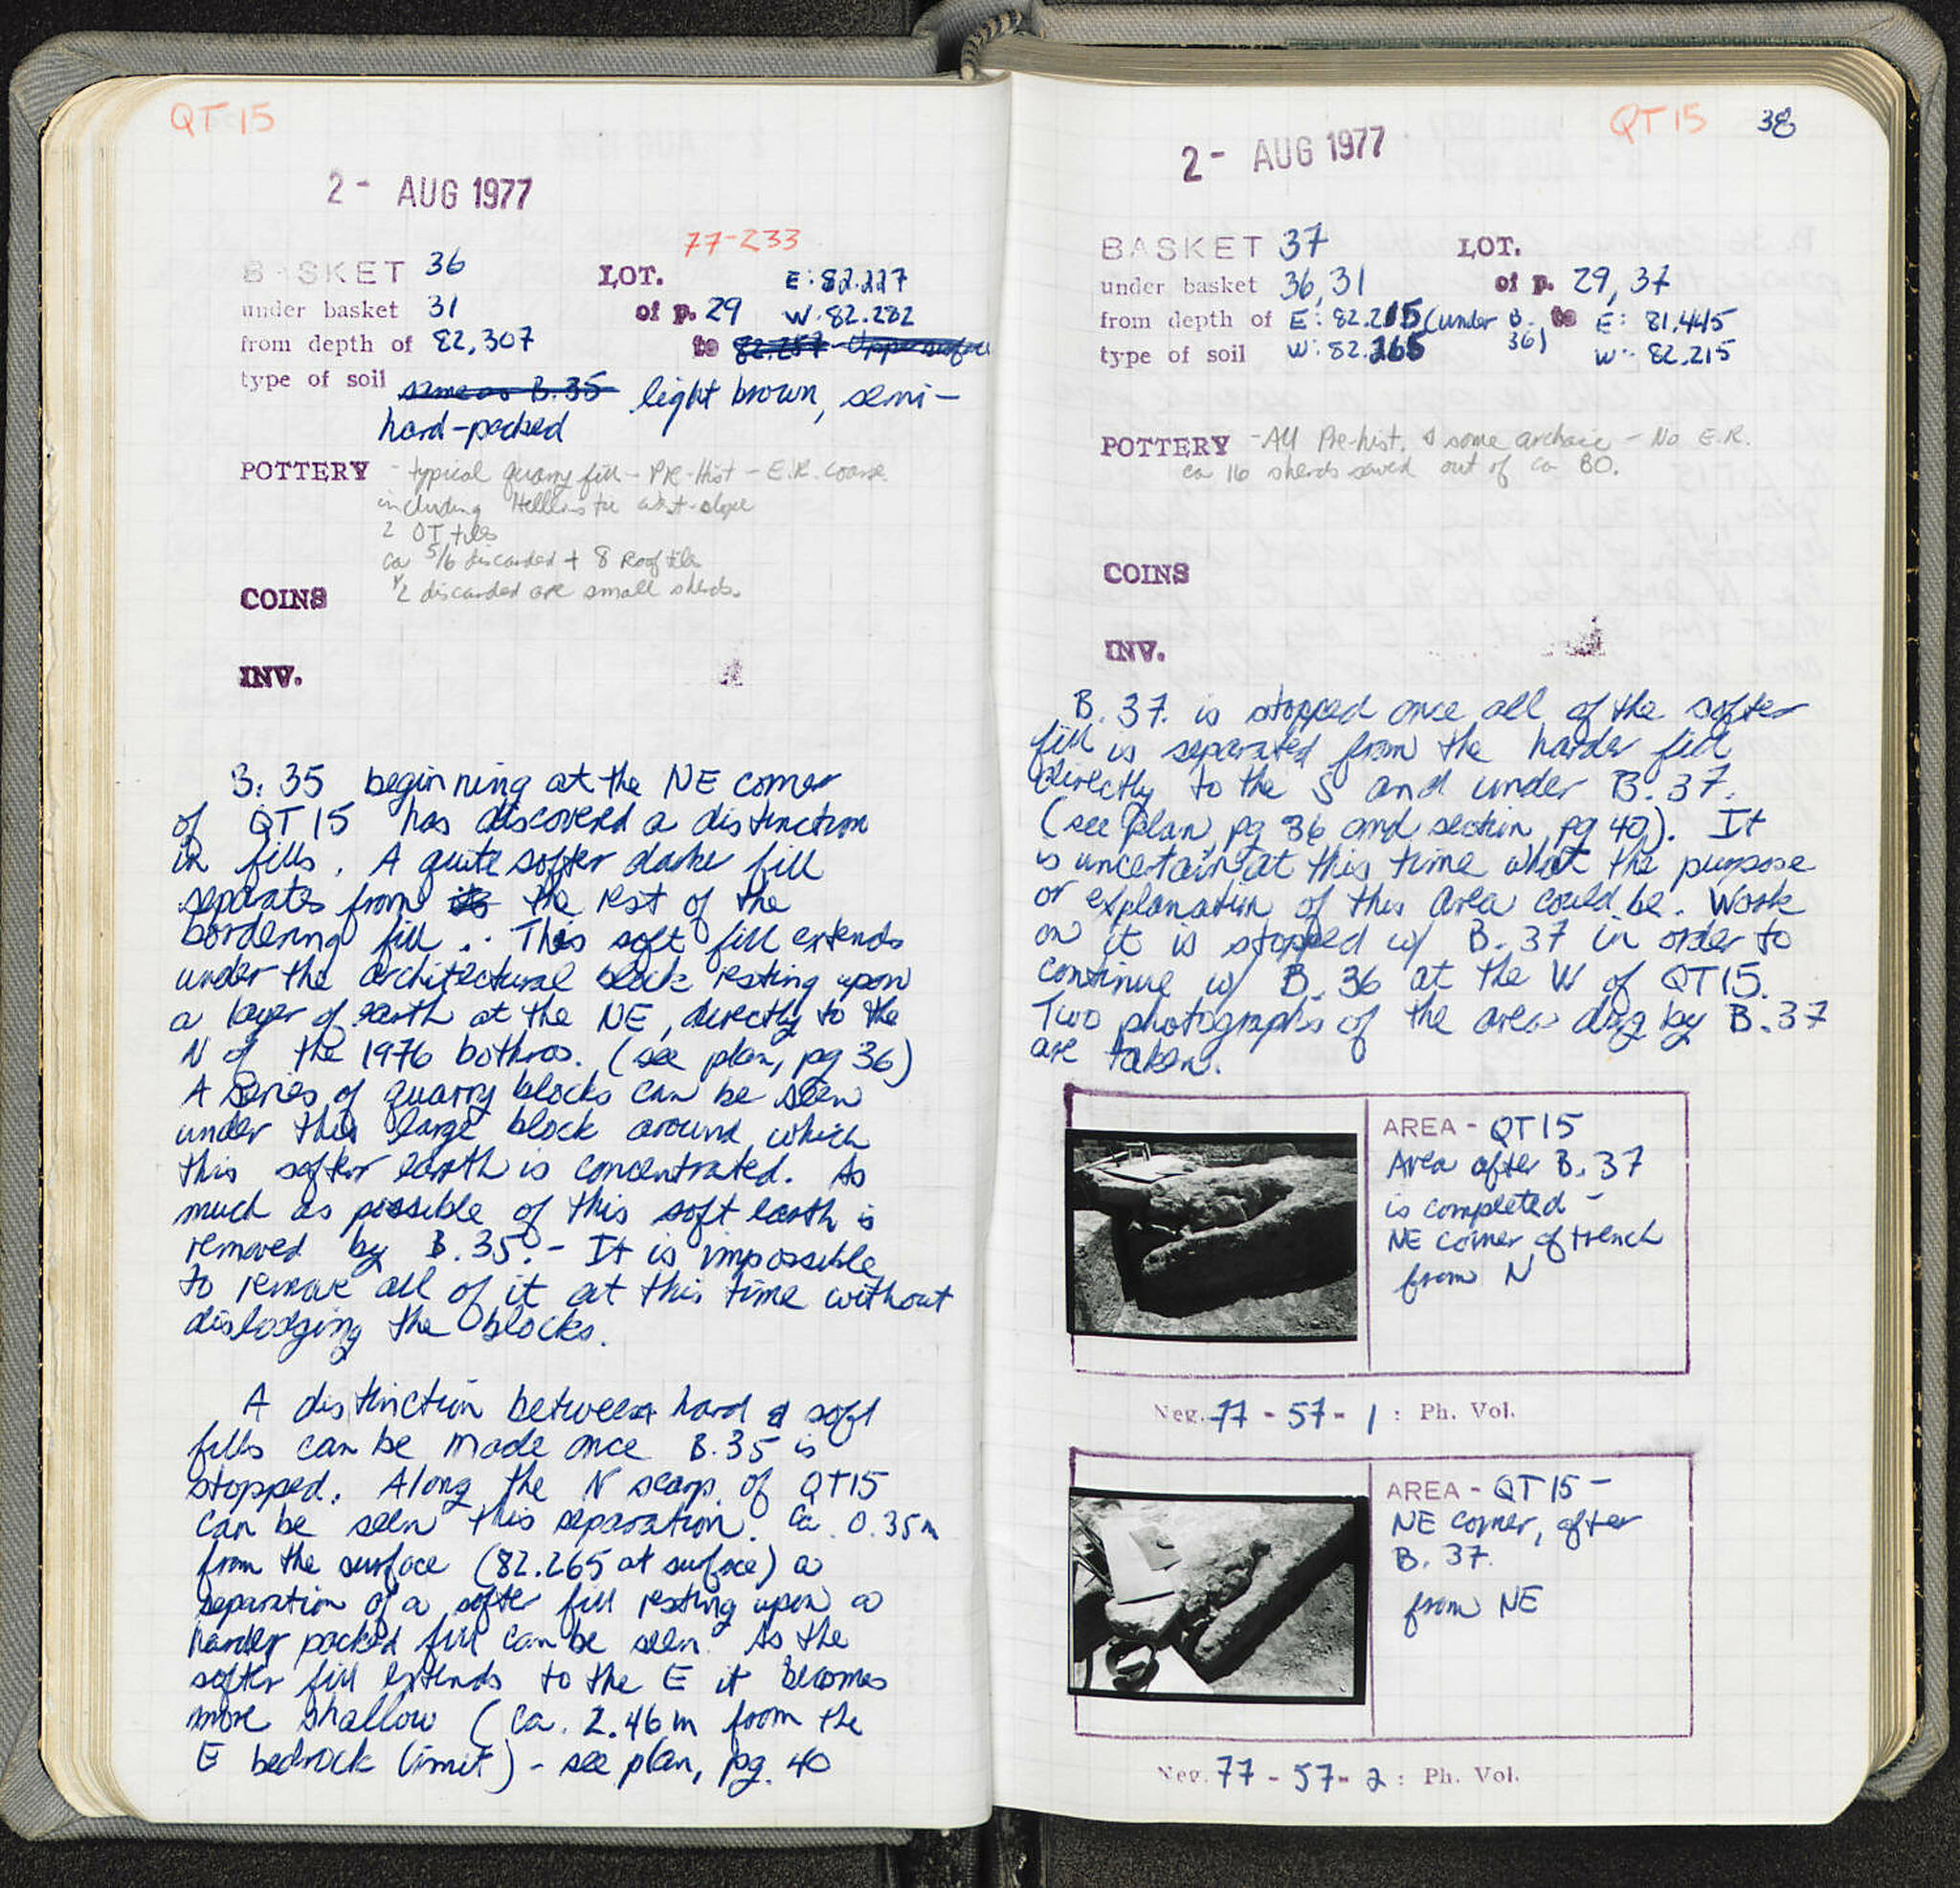 QT 15
2 - AUG 1977
77-233
BASKET 36 LOT. E: 82.227
under basket 31 of p. 29 W: 82.282
from depth of 82,307 to 82.257 - Upper surface
type of soil same as B.35 light brown, semi-
hard-packed
POTTERY - typical quarry fill - Pre-Hist - E.R. coarse
including Hellenistic west-slope
2 OT tiles
ca 5/6 discarded + 8 Roof tiles
1/2 discarded are small sherds.
COINS
INV.
B. 35 beginning at the NE corner
of QT 15 has discovered a distinction
in fills. A quite softer darker fill
separates from its the rest of the
bordering fill.. This soft fill extends
under the architectural block resting upon
a layer of earth at the NE, directly to the
N of the 1976 bothros. (see plan, pg 36)
A series of quarry blocks can be seen
under this large block around which
this softer earth is concentrated. As
much as possible of this soft earth is
removed by B. 35. - It is impossible
to remove all of it at this time without
dislodging the blocks.
A distinction between hard & soft
fills can be made once B. 35 is
stopped. Along the N scarp of QT15
can be seen this separation. Ca. 0.35m
from the surface (82.265 at surface) a
separation of a softer fill resting upon a
harder packed fill can be seen. As the
softer fill extends to the E it becomes
more shallow (ca. 2.46 m from the
E bedrock limit) - see plan, pg. 40
QT 15 38
2 - AUG 1977
BASKET 37 LOT.
under basket 36, 31 of p. 29, 37
from depth of E: 82.215 (under B. 36) to E: 81.445
type of soil W: 82.265 W: 82.215
POTTERY - All Pre-hist. & some archaic - No E.R.
ca 16 sherds saved out of ca 80.
COINS
INV.
B. 37. is stopped once all of the softer
fill is separated from the harder fill
directly to the S and under B. 37.
(see plan, pg 36 and section, pg 40). It
is uncertain at this time what the purpose
or explanation of this area could be. Work
on it is stopped w/ B. 37 in order to
continue w/ B. 36 at the W of QT15.
Two photographs of the area dug by B. 37
are taken.
AREA - QT15
Area after B. 37
is completed -
NE corner of trench
from N
Neg. 77 - 57 - 1 : Ph. Vol.
AREA - QT 15 -
NE corner, after
B. 37.
from NE
Neg. 77 - 57 - 2 : Ph. Vol.